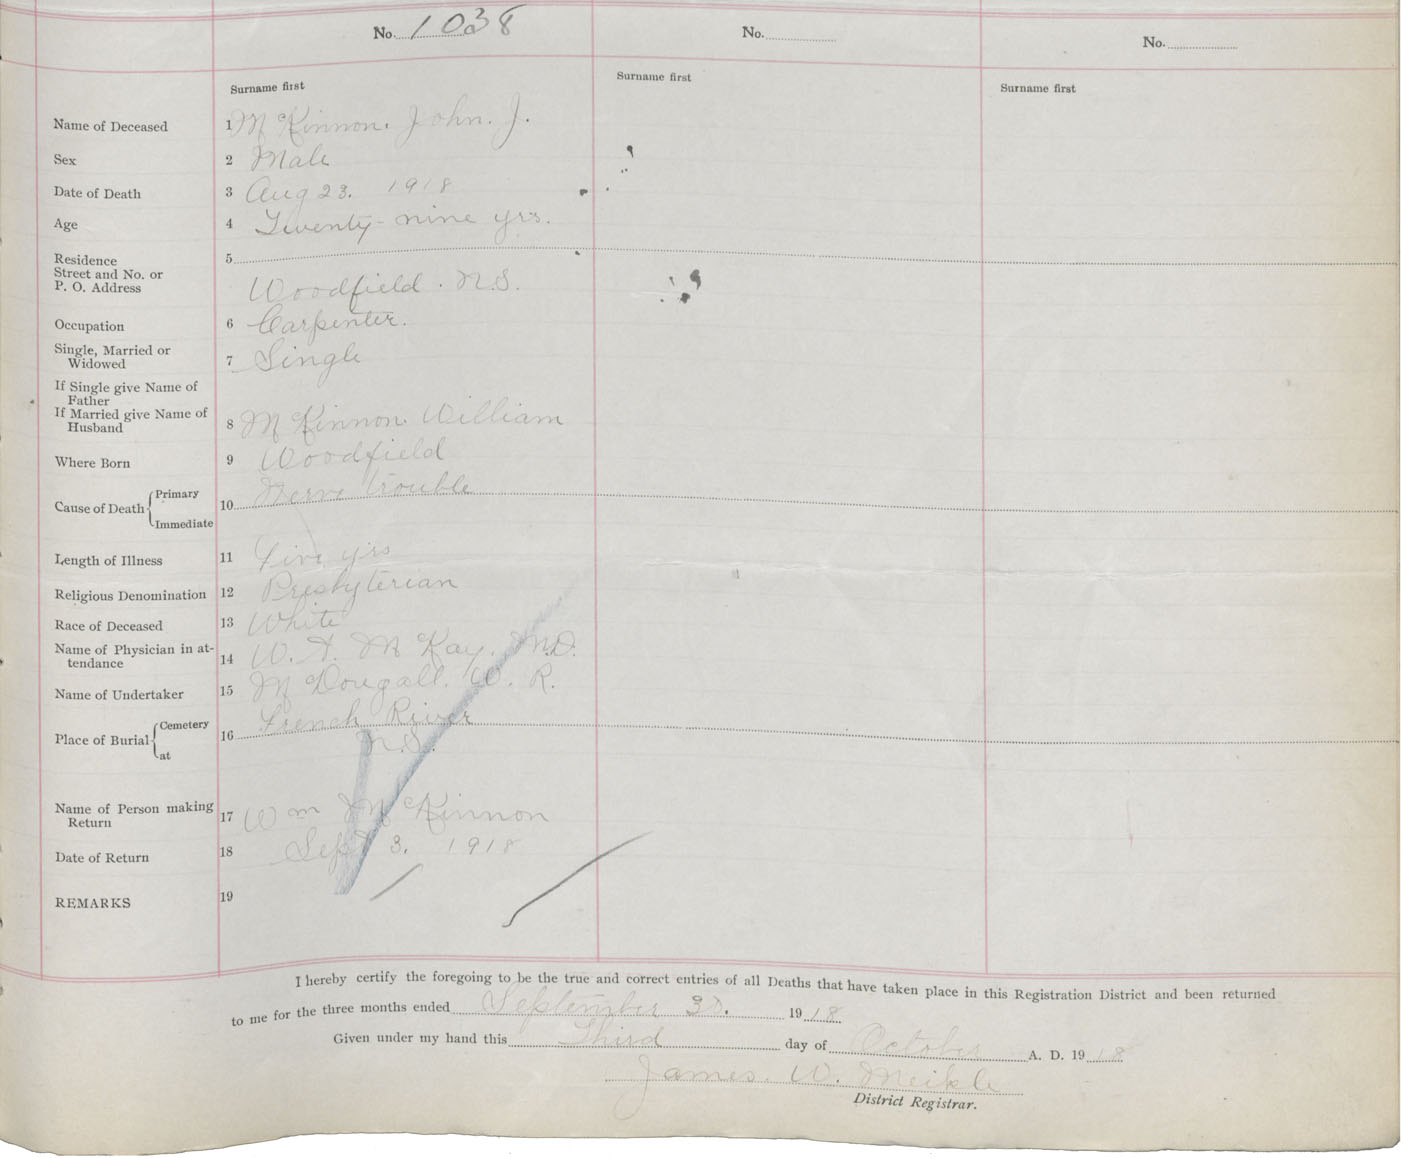 No. 1038
No.
No.
Surname first
Surname first
Surname first
Name of Deceased 1 McKinnon. John. J.
Sex 2 Male
Date of Death 3 Aug 23. 1918
Age 4 Twenty-nine yrs.
Residence 5
Street and No. or
P. O. Address Woodfield. N.S.
Occupation 6 Carpenter.
Single, Married or
Widowed 7 Single
If Single give Name of
Father
If Married give Name of
Husband 8 McKinnon. William
Where Born 9 Woodfield
Cause of Death Primary 10 Nerve trouble
Immediate
Length of Illness 11 Five yrs
Religious Denomination 12 Presbyterian
Race of Deceased 13 White
Name of Physician in at-
tendance 14 W. A. McKay. M.D.
Name of Undertaker 15 McDougall. W. R.
Place of Burial Cemetery 16 French River
at N.S.
Name of Person making
Return 17 Wm McKinnon
Date of Return 18 Sept 3. 1918
REMARKS 19
I hereby certify the foregoing to be the true and correct entries of all Deaths that have taken place in this Registration District and been returned
to me for the three months ended September 30. 1918
Given under my hand this Third day of October A. D. 1918
James. W. Meikle
District Registrar.